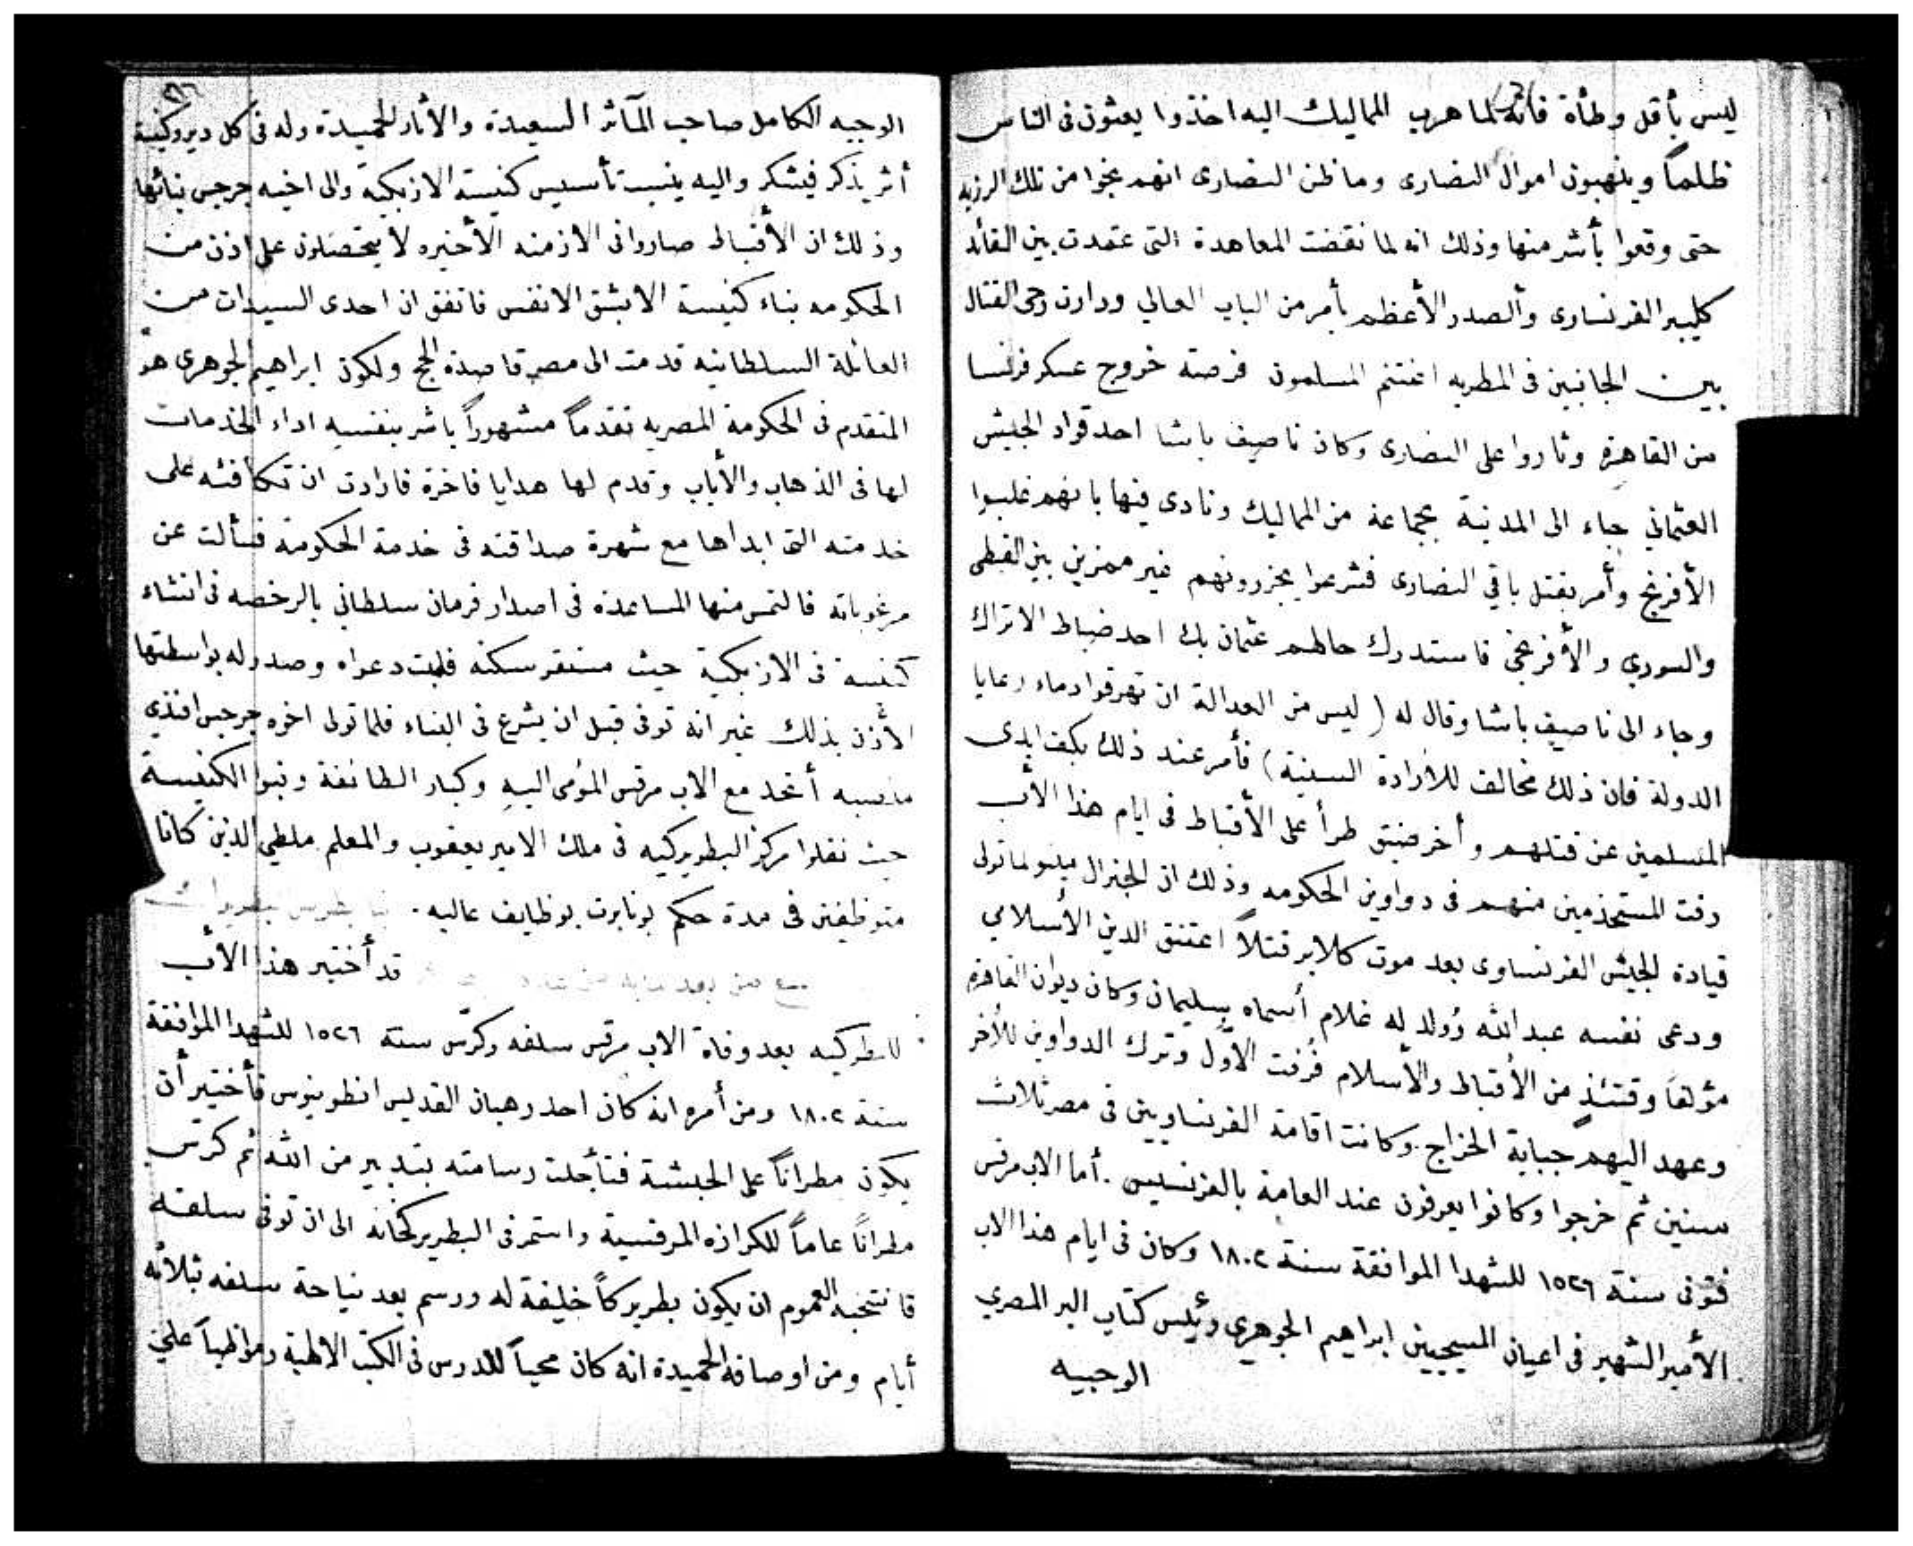 ليس بأقل وطأة فانه لما هرب المماليك اليه اخذوا يعثون فى الناس
ظلماً وينهبون اموال النصارى وما ظن النصارى انهم نجوا من تلك الرزيه
حتى وقعوا بأشر منها وذلك انه لما نقضت المعاهدة التى عقدت بين القائد
كليبر الفرنساوى وألصدر الأعظم بأمر من الباب العالي ودارت رحى القتال
بين الجانبين فى المطريه اغتنم المسلمون فرصته خروج عسكر فرنسا
من القاهرة وثاروا على النصارى وكان ناصيف باشا احد قواد الجيش
العثماني جاء الى المدنية بجماعة من المماليك ونادى فيها بانهم غلبوا
الأفرنج وأمر بقتل باقي النصارى فشرعوا يجزرونهم غير مميزين بين القبطى
والسوري والأفرنجى فاستدرك حالهم عثمان بك احد ضباط الاتراك
وجاء الى ناصيف باشا وقال له ( ليس من العدالة ان تهرقوا دماء رعايا
الدولة فان ذلك مخالف للأرادة السنية ) فأمر عند ذلك بكف ايدى
المسلمين عن قتلهم وأخر ضيق طرأ على الأقباط فى ايام هذا الأب
رفت المستخدمين منهم فى دواوين الحكومه وذلك ان الجنرال مينو لما تولى
قيادة الجيش الفرنساوى بعد موت كلابر قتلاً اعتنق الدين الأسلامي
ودعى نفسه عبد الله وُولد له غلام أسماه بسليمان وكان ديوان القاهرة
مؤلفاً وقتئذٍ من الأقباط والأسلام فُرفت الاوّل وترك الدواوين للأخر
وعهد اليهم جباية الخراج. وكانت اقامة الفرنساويين فى مصر ثلاث
سنين ثم خرجوا وكانوا يعرفون عند العامة بالفرنسيس. أما الاب مرقس
فتوفى سنة ١٥٢٦ للشهدا الموافقة سنة ١٨٠٢ وكان فى ايام هذا الاب
الأمير الشهير فى اعيان المسيحيين ابراهيم الجوهرى رئيس كتاب البر المصري
الوجيه
الوجيه الكامل صاحب المآثر السعيدة والأثار الحميدة وله فى كل دير وكنيسة
أثر يذكر فيشكر واليه ينسب تأسيس كنيسة الازبكية والى اخيه جرجس بنائها
وذلك ان الأقباط صاروا فى الازمنه الأخيره لا يتحصلون على اذن من
الحكومه بناء كنيسة الا بشق الانفس فاتفق ان احدى السيدات من
العائلة السلطانيه قدمت الى مصر قاصدة الحج ولكون ابراهيم الجوهرى هو
المتقدم فى الحكومة المصريه تقدماً مشهوراً باشر بنفسه اداء الخدمات
لها فى الذهاب والأياب وقدم لها هدايا فاخرة فارادت ان تكافئه على
خدمته التى ابداها مع شهرة صداقته فى خدمة الحكومة فسألت عن
مرغوباته فالتمس منها المساعدة فى اصدار فرمان سلطاني بالرخصه فى انشاء
كنيسة فى الازبكية حيث مستقر سكنه فلبت دعواه وصدر له بواسطتها
الأذن بذلك غير انه توفى قبل ان يشرع فى البناء فلما تولى اخوه جرجس افندى
منصبه أتحد مع الاب مرقس المؤمى اليه وكبار الطائفة وبنوا الكنيسة
حيث نقلوا مركز البطريركيه فى ملك الامير يعقوب والمعلم ملطي الذين كانا
متوظفين فى مدة حكم بونابرت بوظايف عاليه.
قد أختير هذا الأب
للبطركيه بعد وفاة الاب مرقس سلفه وكرّس سنة ١٥٢٦ للشهدا الموافقة
سنة ١٨٠٢ ومن أمره انه كان احد رهبان القديس انطونيوس فأختير أن
يكون مطراناً على الحبشة فتأجلت رسامته بتدبير من الله ثم كرّس
مطراناً عاماً للكرازه المرقسية واستمر فى البطريركخانه الى ان توفى سلفه
فانتخبه العموم ان يكون بطريركاً خليفة له ورسم بعد نياحة سلفه بثلاثه
أيام ومن اوصافه الحميدة انه كان محباً للدرس فى الكتب الالهية ومواظباً على